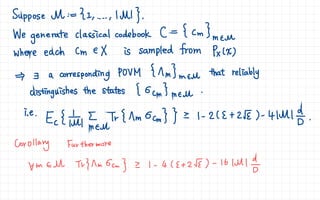 Suppose M := {1, ..., |M|}.
We generate classical codebook C = {c_m}_{m∈M}
where each c_m ∈ X is sampled from P_X(x)
⇒ ∃ a corresponding POVM {Λ_m}_{m∈M} that reliably
distinguishes the states {σ_{c_m}}_{m∈M}.
i.e. E_C{ 1/|M| Σ_{m∈M} Tr{Λ_m σ_{c_m}} } ≥ 1-2(ε+2√ε)-4|M| d/D.
Corollary Furthermore
∀m∈M Tr{Λ_m σ_{c_m}} ≥ 1-4(ε+2√ε)-16|M| d/D